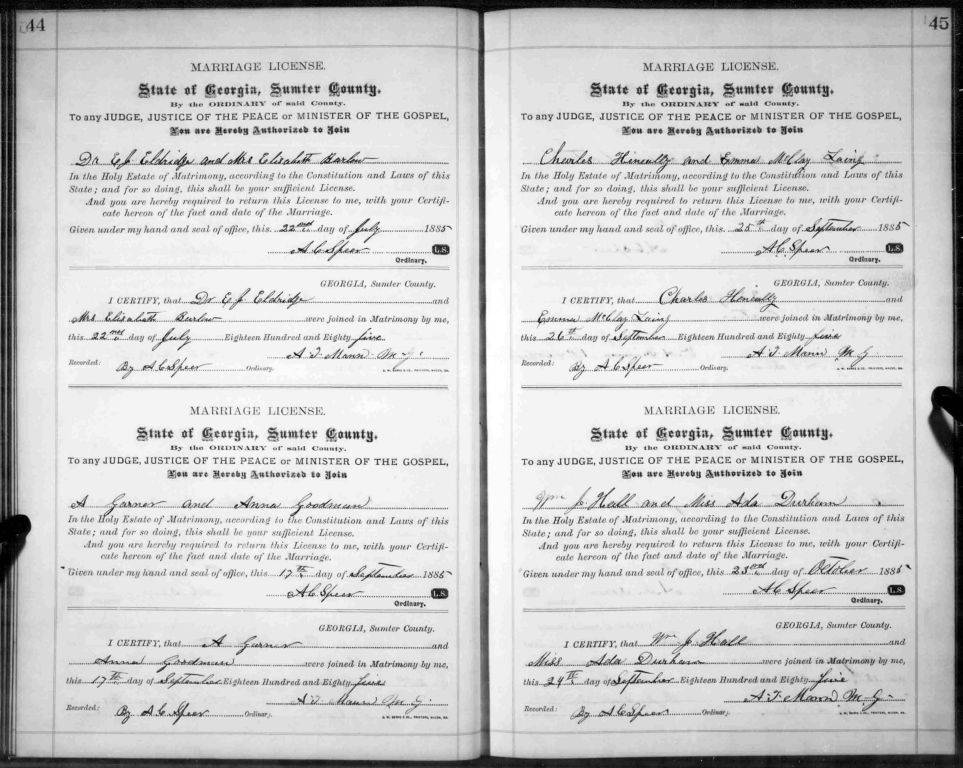 44
MARRIAGE LICENSE.
State of Georgia, Sumter County.
By the ORDINARY of said County.
To any JUDGE, JUSTICE OF THE PEACE or MINISTER OF THE GOSPEL,
You are Hereby Authorized to Join
Dr E J Eldridge and Mrs Elizabeth Barlow
In the Holy Estate of Matrimony, according to the Constitution and Laws of this
State; and for so doing, this shall be your sufficient License.
And you are hereby required to return this License to me, with your Certifi-
cate hereon of the fact and date of the Marriage.
Given under my hand and seal of office, this 22nd day of July 1885
A C Speer L.S.
Ordinary.
GEORGIA, Sumter County.
I CERTIFY, that Dr E J Eldridge and
Mrs Elizabeth Barlow were joined in Matrimony by me,
this 22nd day of July Eighteen Hundred and Eighty five
A. T. Mann M. G.
Recorded: By A C Speer Ordinary.
MARRIAGE LICENSE.
State of Georgia, Sumter County.
By the ORDINARY of said County.
To any JUDGE, JUSTICE OF THE PEACE or MINISTER OF THE GOSPEL,
You are Hereby Authorized to Join
A Garner and Anna Goodman
In the Holy Estate of Matrimony, according to the Constitution and Laws of this
State; and for so doing, this shall be your sufficient License.
And you are hereby required to return this License to me, with your Certifi-
cate hereon of the fact and date of the Marriage.
Given under my hand and seal of office, this 17th day of September 1885
A C Speer L.S.
Ordinary.
GEORGIA, Sumter County.
I CERTIFY, that A Garner and
Anna Goodman were joined in Matrimony by me,
this 17th day of September Eighteen Hundred and Eighty five
A. T. Mann M. G.
Recorded: By A C Speer Ordinary.
45
MARRIAGE LICENSE.
State of Georgia, Sumter County.
By the ORDINARY of said County.
To any JUDGE, JUSTICE OF THE PEACE or MINISTER OF THE GOSPEL,
You are Hereby Authorized to Join
Charles and Emma McClay Laing
In the Holy Estate of Matrimony, according to the Constitution and Laws of this
State; and for so doing, this shall be your sufficient License.
And you are hereby required to return this License to me, with your Certifi-
cate hereon of the fact and date of the Marriage.
Given under my hand and seal of office, this 25th day of September 1885
A C Speer L.S.
Ordinary.
GEORGIA, Sumter County.
I CERTIFY, that Charles and
Emma McClay Laing were joined in Matrimony by me,
this 26th day of September Eighteen Hundred and Eighty five
A. T. Mann M. G
Recorded: By A C Speer Ordinary.
MARRIAGE LICENSE.
State of Georgia, Sumter County.
By the ORDINARY of said County.
To any JUDGE, JUSTICE OF THE PEACE or MINISTER OF THE GOSPEL,
You are Hereby Authorized to Join
Wm J Hall and Miss Ada Durham
In the Holy Estate of Matrimony, according to the Constitution and Laws of this
State; and for so doing, this shall be your sufficient License.
And you are hereby required to return this License to me, with your Certifi-
cate hereon of the fact and date of the Marriage.
Given under my hand and seal of office, this 23rd day of October 1885
A C Speer L.S.
Ordinary.
GEORGIA, Sumter County.
I CERTIFY, that Wm J Hall and
Miss Ada Durham were joined in Matrimony by me,
this 24th day of September Eighteen Hundred and Eighty five
A. T. Mann M. G
Recorded: By A C Speer Ordinary.